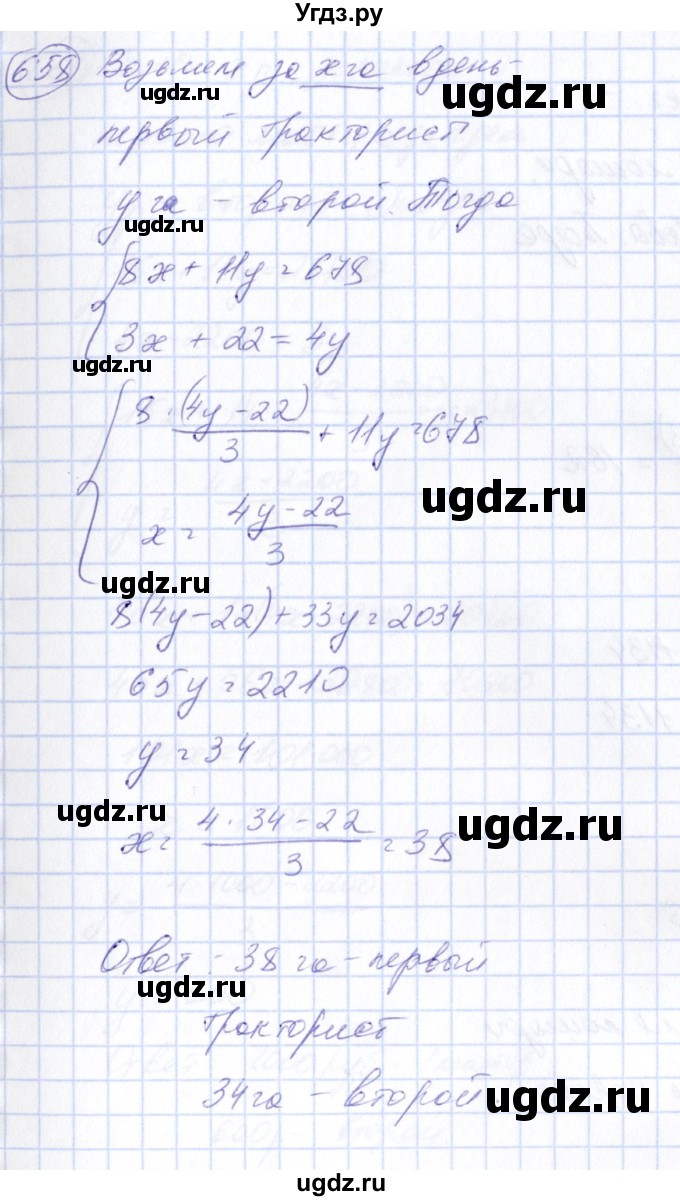 Угдз.ру
658 Возьмем за х га в день-
ugdz.ru ugdz.ru
первый тракторист
у га - второй. Тогда
ugdz.ru
8x + 11y = 678
3x + 22 = 4y
ugdz.ru
8 · (4y - 22)/3 + 11y = 678
ugdz.ru
x = (4y - 22)/3
ugdz.ru
8(4y - 22) + 33y = 2034
65y = 2210
y = 34
ugdz.ru
x = (4 · 34 - 22)/3 = 38
ugdz.ru
Ответ: 38 га - первый
ugdz.ru
тракторист
34 га - второй.
ugdz.ru
ugdz.ru